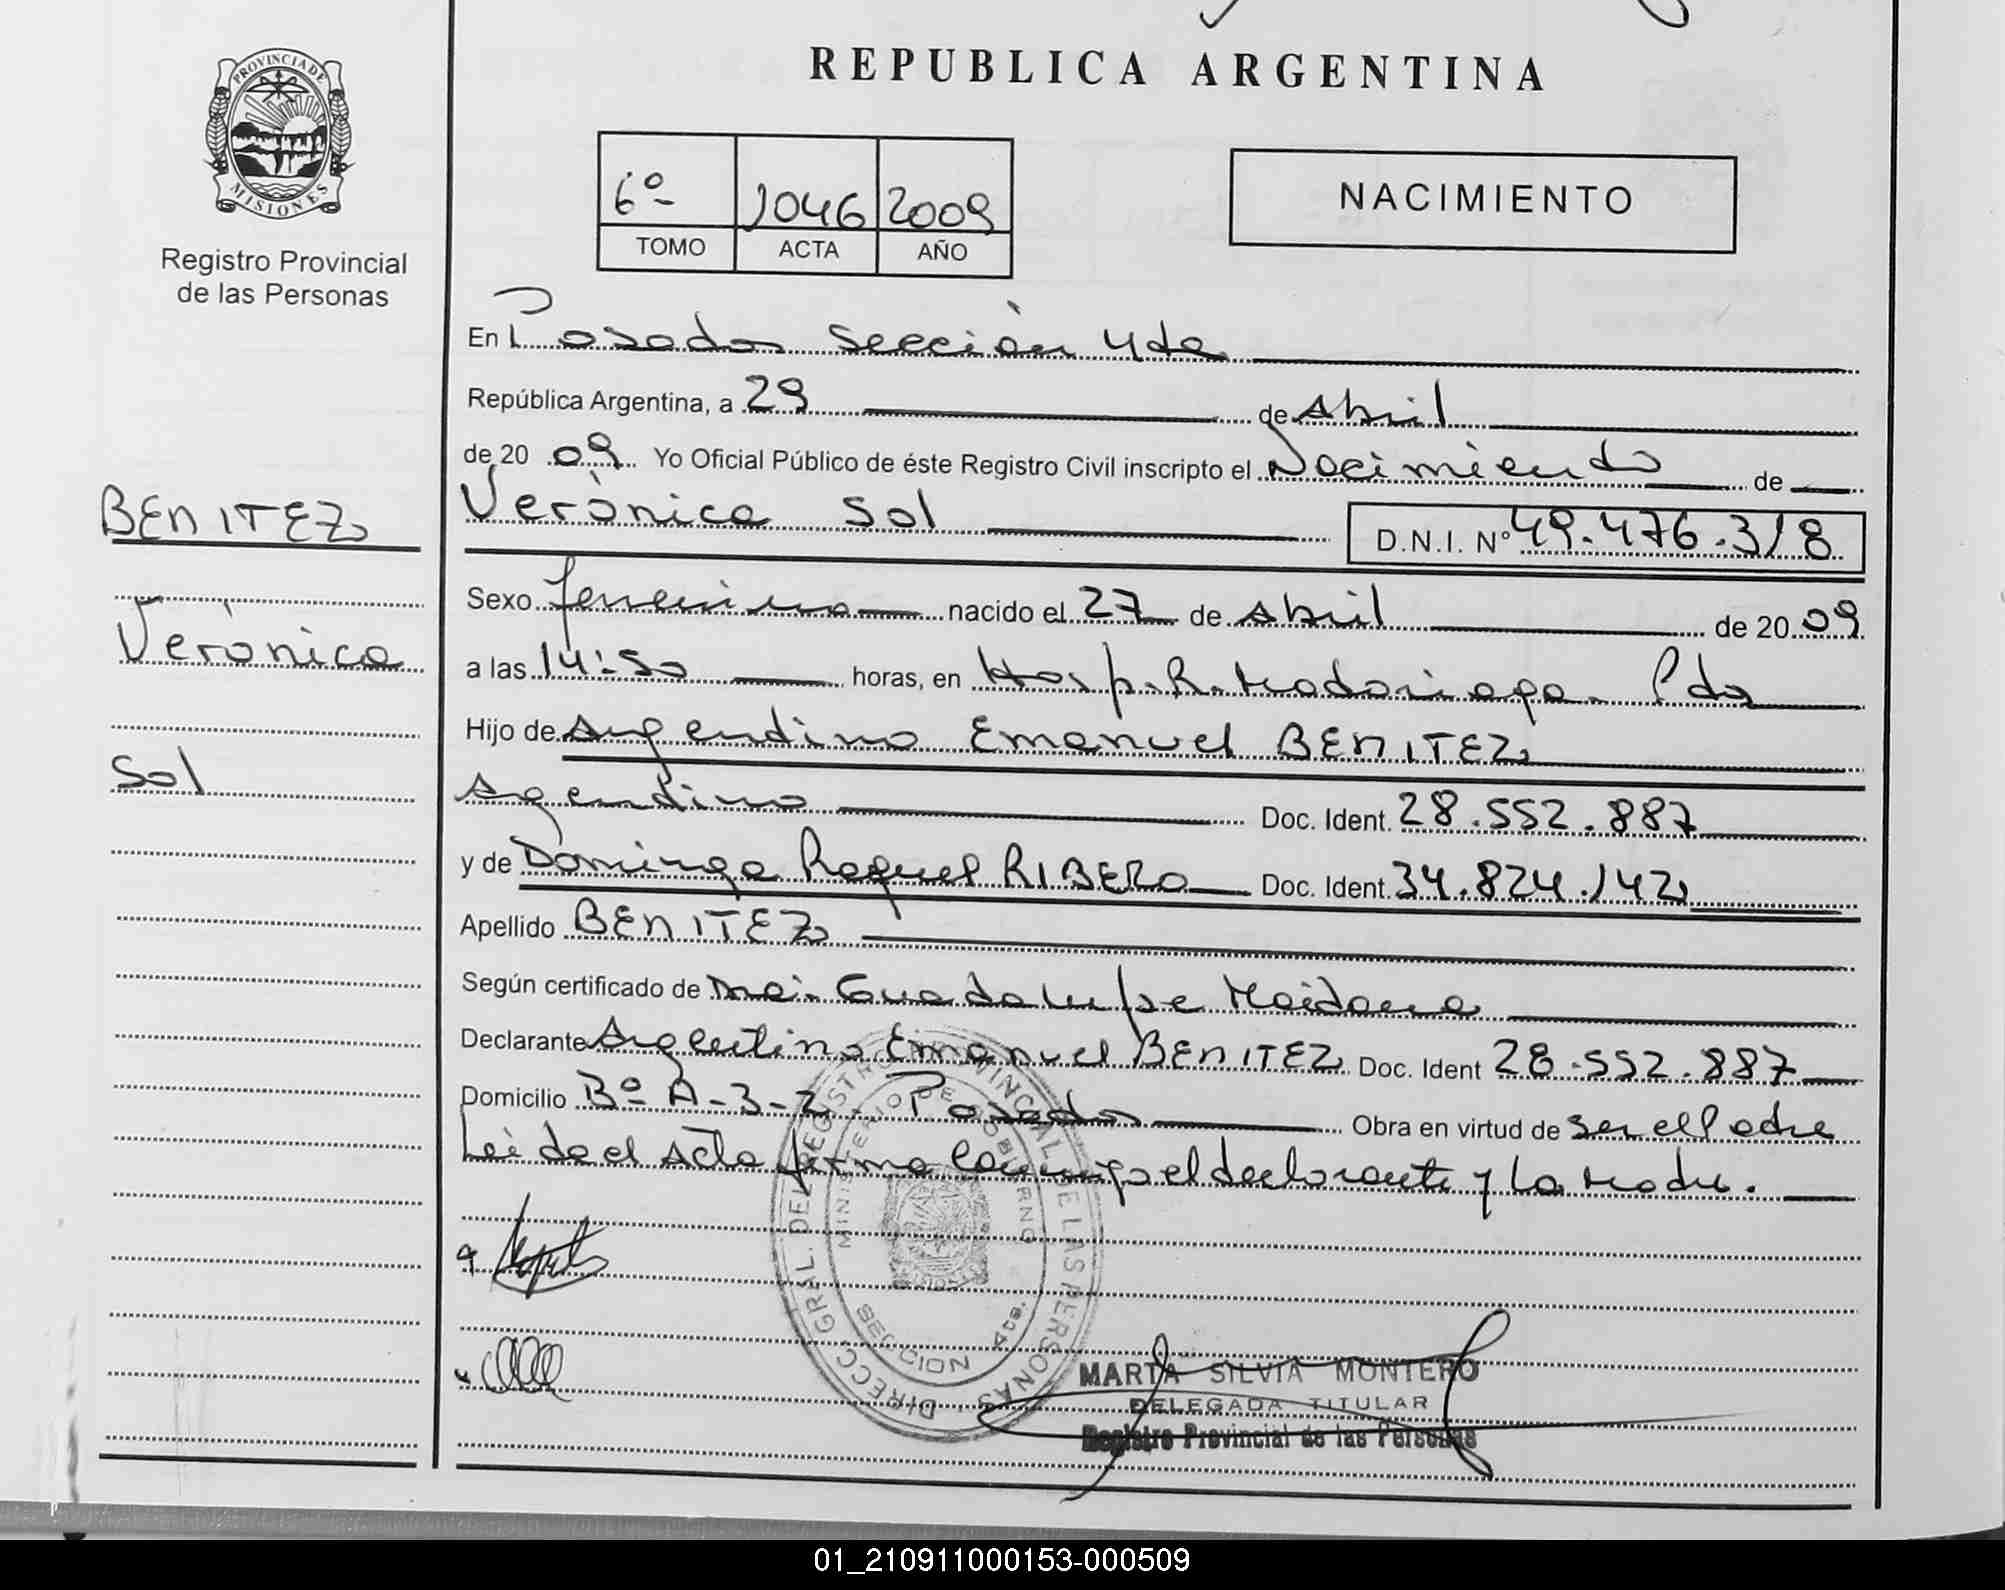 REPUBLICA ARGENTINA
PROVINCIA DE
MISIONES
Registro Provincial
de las Personas
6º 1046 2009
TOMO ACTA AÑO
NACIMIENTO
En Posadas Sección 4ta
República Argentina, a 29 de Abril
de 20 09 Yo Oficial Público de éste Registro Civil inscripto el Nacimiento de
Verónica Sol D.N.I. Nº 49.476.318
BENITEZ
Verónica
Sol
Sexo femenino nacido el 27 de Abril de 20 09
a las 14:50 horas, en Hosp. R. Madariaga - Pdas
Hijo de Argentino Emanuel BENITEZ
Argentino Doc. Ident. 28.552.887
y de Dominga Raquel RIBERO Doc. Ident. 34.824.142
Apellido BENITEZ
Según certificado de Guadalupe Maidana
Declarante Argentino Emanuel BENITEZ Doc. Ident 28.552.887
Domicilio Bº A-3-2 - Posadas Obra en virtud de ser el Padre
Leida el Acta firma conmigo el declarante y la Madre.
DIRECC. GRAL. DEL REGISTRO PROVINCIAL DE LAS PERSONAS
MINISTERIO DE GOBIERNO
SECCION 4ta.
MARTA SILVIA MONTERO
DELEGADA TITULAR
Registro Provincial de las Personas
01_210911000153-000509